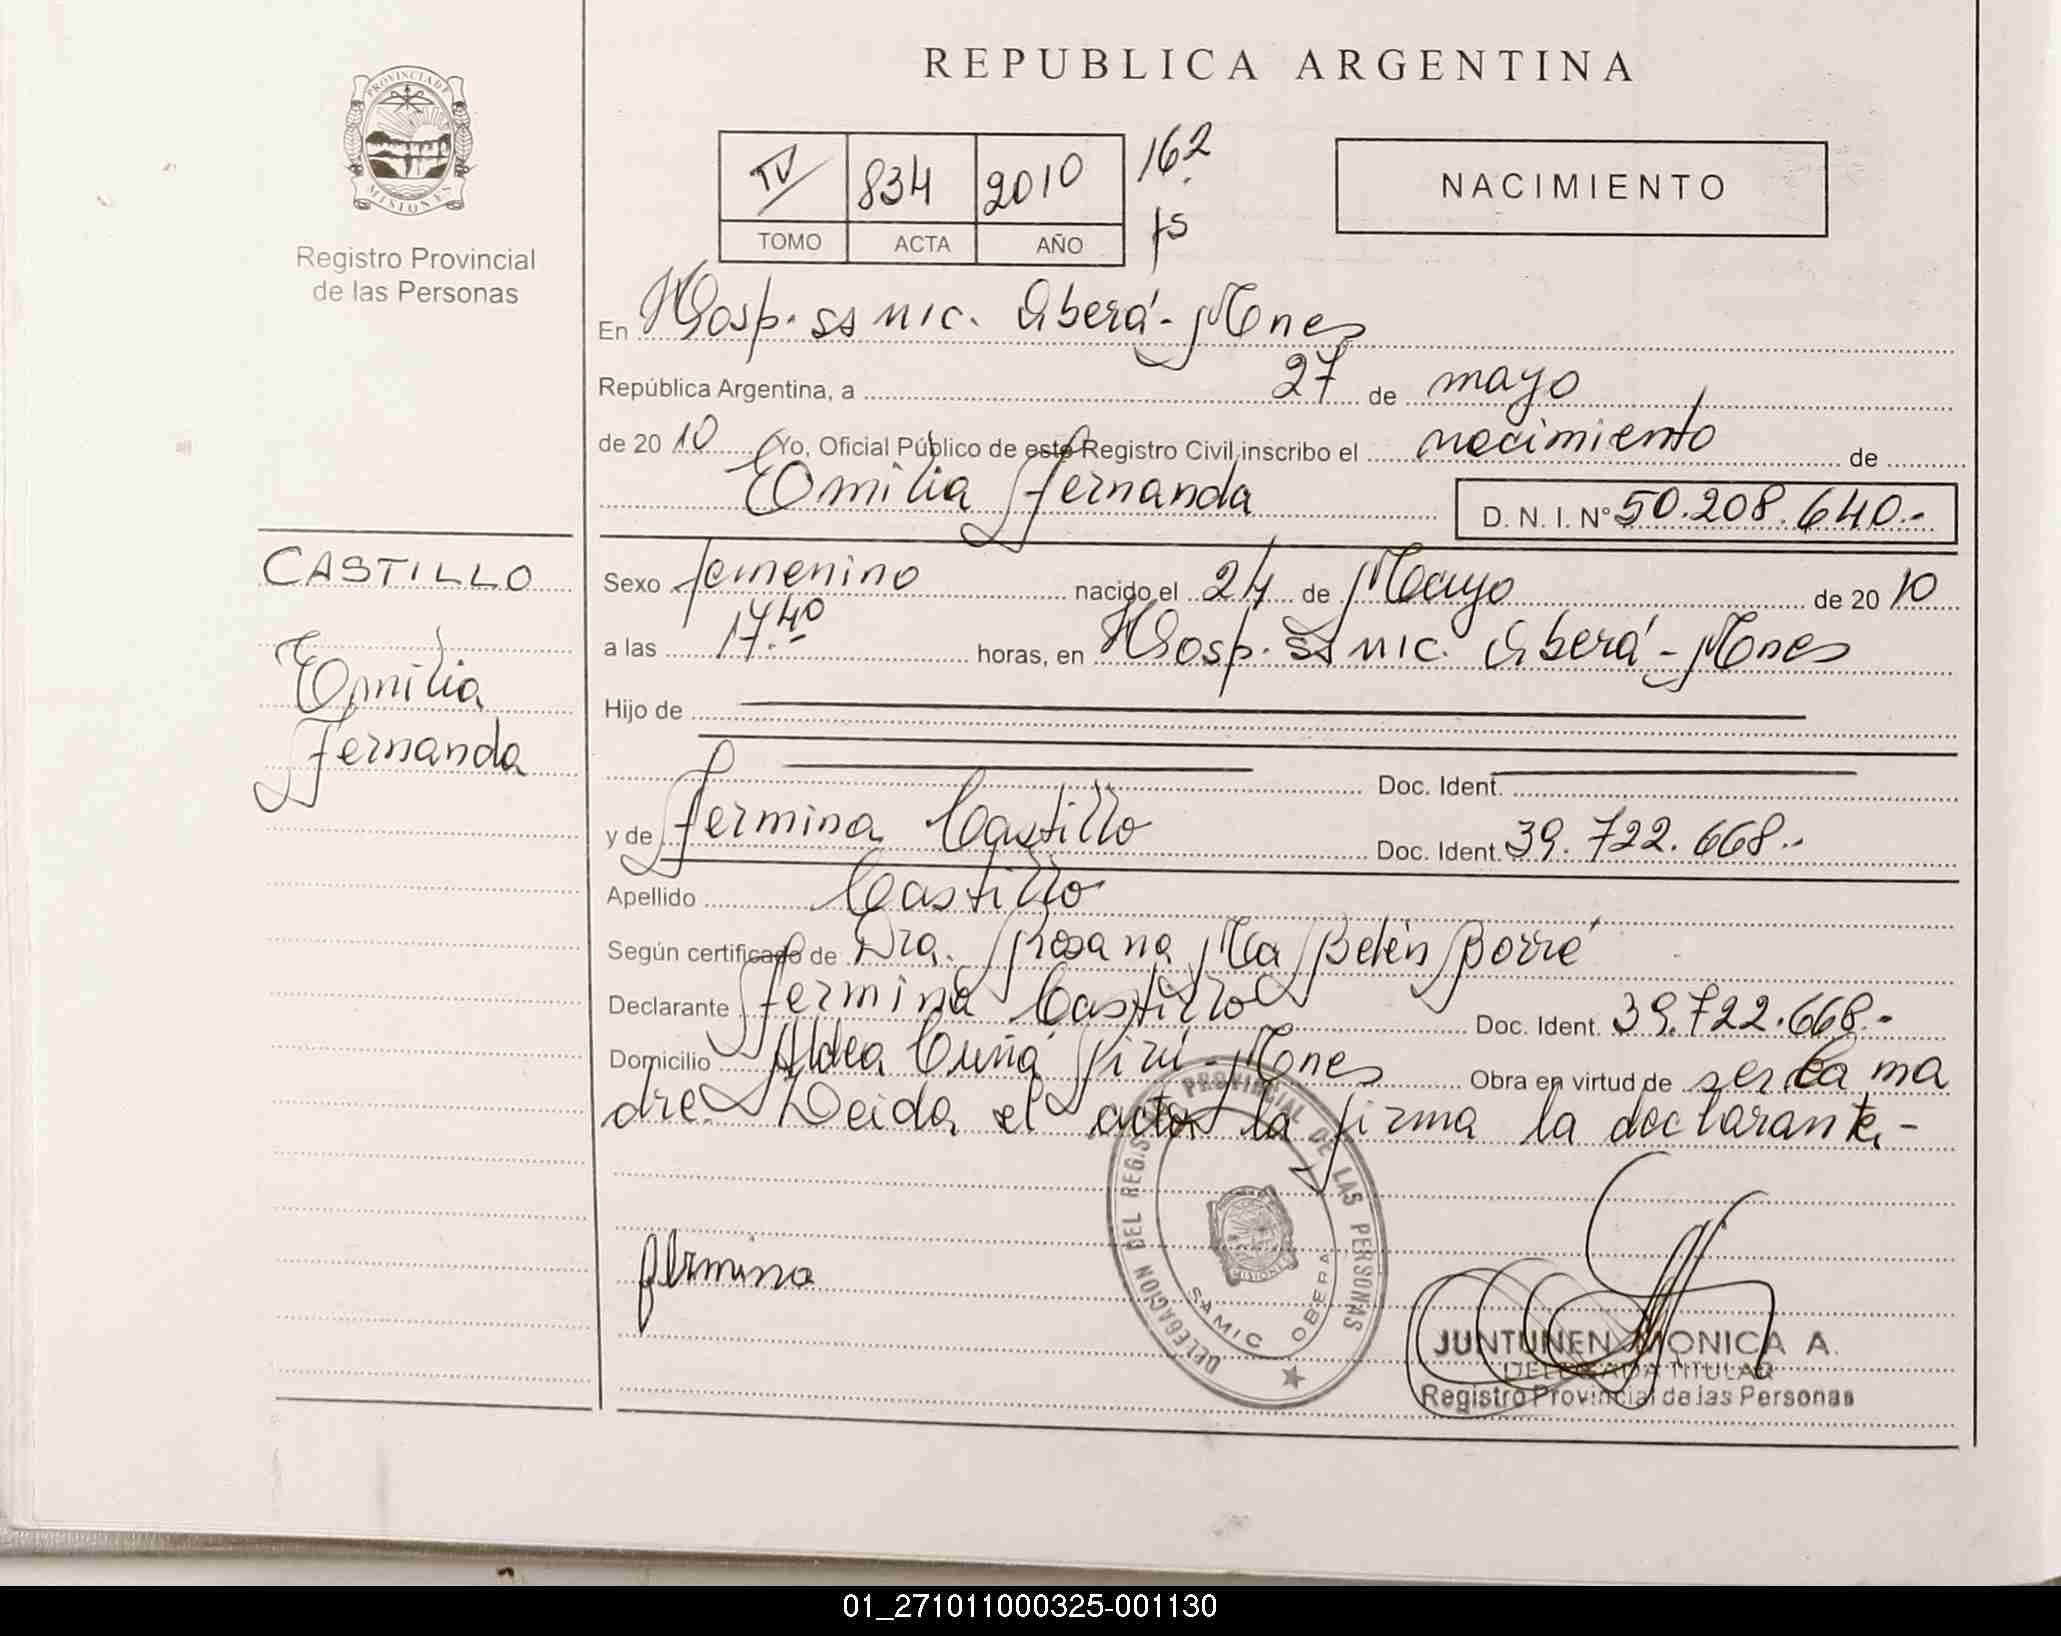 REPUBLICA ARGENTINA
PROVINCIA DE MISIONES
Registro Provincial
de las Personas
IV 834 2010 162
TOMO ACTA AÑO fs
NACIMIENTO
En Hosp. ss mic. Oberá - Mnes
República Argentina, a 27 de mayo
de 20 10 Yo, Oficial Público de este Registro Civil inscribo el nacimiento de
Emilia Fernanda D. N. I. N° 50.208.640.-
CASTILLO
Emilia
Fernanda
Sexo femenino nacido el 24 de Mayo de 20 10
a las 17.40 horas, en Hosp. ss mic. Oberá - Mnes
Hijo de
Doc. Ident.
y de Fermina Castillo Doc. Ident. 39.722.668.-
Apellido Castillo
Según certificado de Dra. Rosana Ma Belén Borré
Declarante Fermina Castillo Doc. Ident. 39.722.668.-
Domicilio Aldea Cuña Pirú - Mnes Obra en virtud de ser la ma
dre. Leida el acta la firma la declarante.-
fermina
DELEGACION DEL REGIS. PROVINCIAL DE LAS PERSONAS
SAMIC OBERA
MISIONES
JUNTUNEN MONICA A.
DELEGADA TITULAR
Registro Provincial de las Personas
01_271011000325-001130